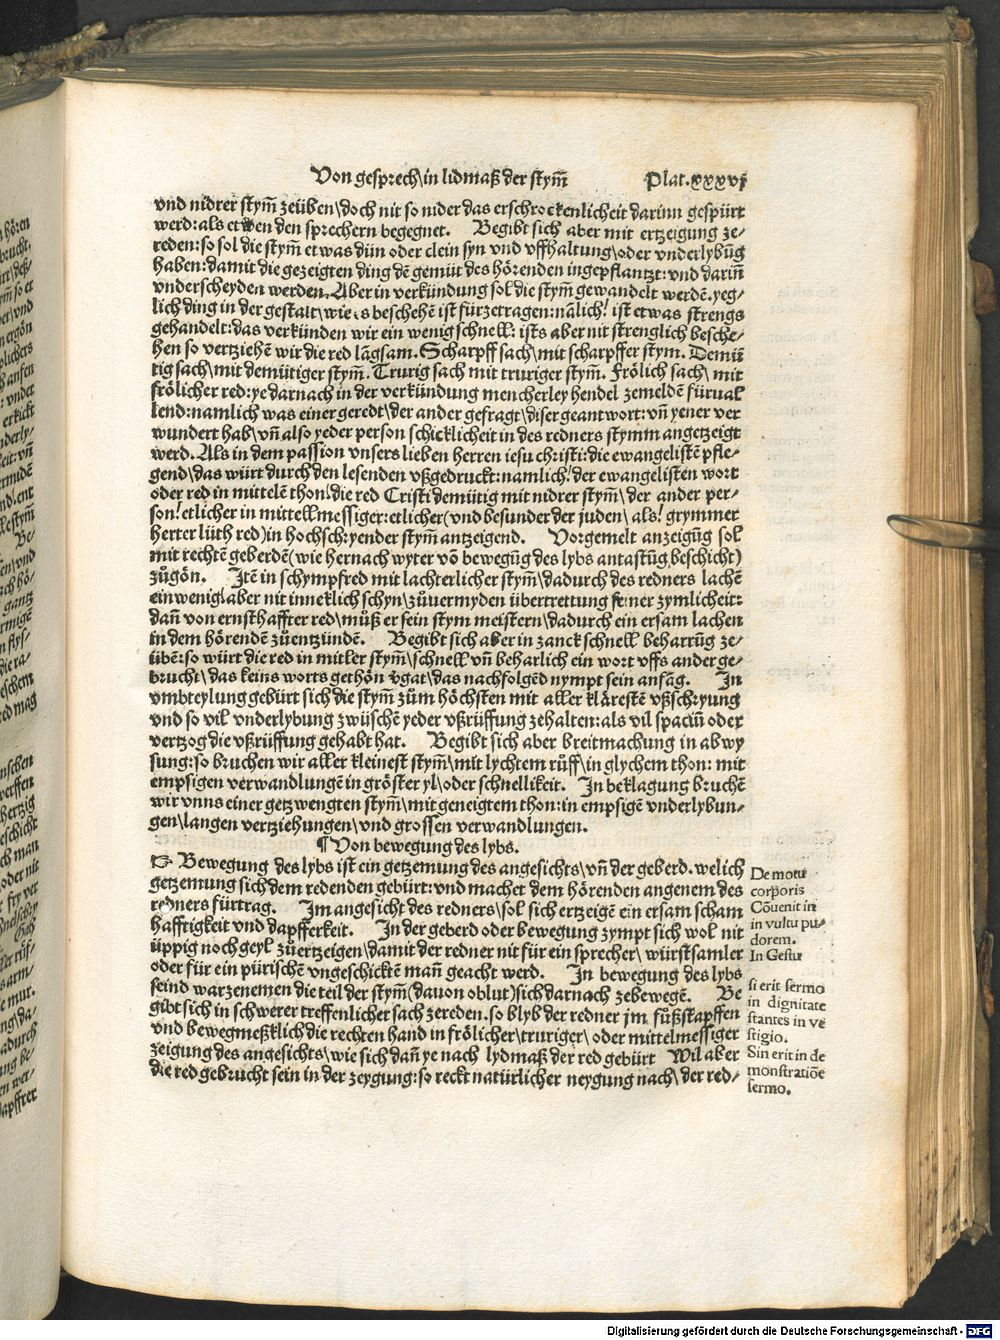 Von gesprech\in lidmaß der stym̃ Plat.xxxvj
vnd nidrer stym̃ zeüben\doch nit so nider das erschrockenlicheit darinn gespürt
werd:als etwen den sprechern begegnet. Begibt sich aber mit ertzeigung ze⸗
reden:so sol die stym̃ etwas dün oder clein syn vnd vffhaltung\oder vnderlybũg
haben:damit die gezeigten ding dẽ gemüt des hörenden ingepflantzt:vnd dariñ
vnderscheyden werden. Aber in verkündung sol die stym̃ gewandelt werdẽ.yeg⸗
lich ding in der gestalt\wie es beschehẽ ist fürzetragen:nãlich! ist etwas strengs
gehandelt:das verkünden wir ein wenig schnell: ists aber nit strenglich besche⸗
hen so vertziehẽ wir die red lãgsam. Scharpff sach\mit scharpffer stym. Demü
tig sach\mit demütiger stym̃. Trurig sach mit truriger stym̃. Frölich sach\ mit
frölicher red:ye darnach in der verkündung mencherley hendel zemeldẽ fürual
lend:namlich was einer geredt\der ander gefragt\diser geantwort:vñ yener ver
wundert hab\vñ also yeder person schicklicheit in des redners stymm angetzeigt
werd. Als in dem passion vnsers lieben herren iesu christi:die ewangelistẽ pfle⸗
gend\das würt durch den lesenden vßgedruckt:namlich! der ewangelisten wort
oder red in mittelẽ thon\die red Cristi demütig mit nidrer stym̃\ der ander per⸗
son!etlicher in mittellmessiger:etlicher(vnd besunder der juden\ als! grymmer
herter lüth red)in hochschryender stym̃ antzeigend. Vorgemelt anzeigũg sol
mit rechtẽ geberdẽ(wie hernach wyter võ bewegũg des lybs antastũg beschicht)
zůgõn. Itẽ in schympfred mit lachterlicher stym̃\dadurch des redners lachẽ
ein wenig\aber nit inneklich schyn\zůuermyden übertrettung seiner zymlicheit:
dañ von ernsthaffter red\můß er sein stym meistern\dadurch ein ersam lachen
in dem hörendẽ zůentzündẽ. Begibt sich aber in zanck schnell beharrũg ze⸗
übẽ:so würt die red in mitler stym̃\schnell vñ beharlich ein wort vffs ander ge⸗
brucht\das keins worts gethön v̈gat\das nachfolgẽd nympt sein anfãg. In
vmbteylung gebürt sich die stym̃ zům höchsten mit aller klärestẽ vßschryung
vnd so vil vnderlybung zwüschẽ yeder vßrüffung zehalten:als vil spaciũ oder
vertzog die vßrüffung gehabt hat. Begibt sich aber breitmachung in abwy
sung:so bruchen wir aller kleinest stym̃\mit lychtem rüff\in glychem thon: mit
empsigen verwandlungẽ in gröster yl\oder schnellikeit. In beklagung bruchẽ
wir vnns einer getzwengten stym̃\mit geneigtem thon:in empsigẽ vnderlybun⸗
gen\langen vertziehungen\vnd grossen verwandlungen.
¶ Von bewegung des lybs.
☞ Bewegung des lybs ist ein getzemung des angesichts\vñ der geberd.welich
getzemung sich dem redenden gebürt:vnd machet dem hörenden angenem des
redners fürtrag. Im angesicht des redners\sol sich ertzeigẽ ein ersam scham
hafftigkeit vnd dapfferkeit. In der geberd oder bewegung zympt sich wol nit
üppig noch geyl zůertzeigen\damit der redner nit für ein sprecher\ würstsamler
oder für ein pürischẽ vngeschicktẽ mañ geacht werd. In bewegung des lybs
seind warzenemen die teil der stym̃(dauon oblut)sich darnach zebewegẽ. Be
gibt sich in schwerer treffenlicher sach zereden.so blyb der redner jm fůßstapffen
vnd bewegmeßklich die rechten hand in frölicher\truriger\ oder mittelmessiger
zeigung des angesichts\wie sich dañ ye nach lydmaß der red gebürt Wil aber
die red gebrucht sein in der zeygung:so reckt natürlicher neygung nach\ der red⸗
De motu
corporis
Cõuenit in
in vultu pu⸗
dorem.
In Gestu
si erit sermo
in dignitate
stantes in ve
stigio.
Sin erit in de
monstratiõe
sermo.
Digitalisierung gefördert durch die Deutsche Forschungsgemeinschaft - DFG